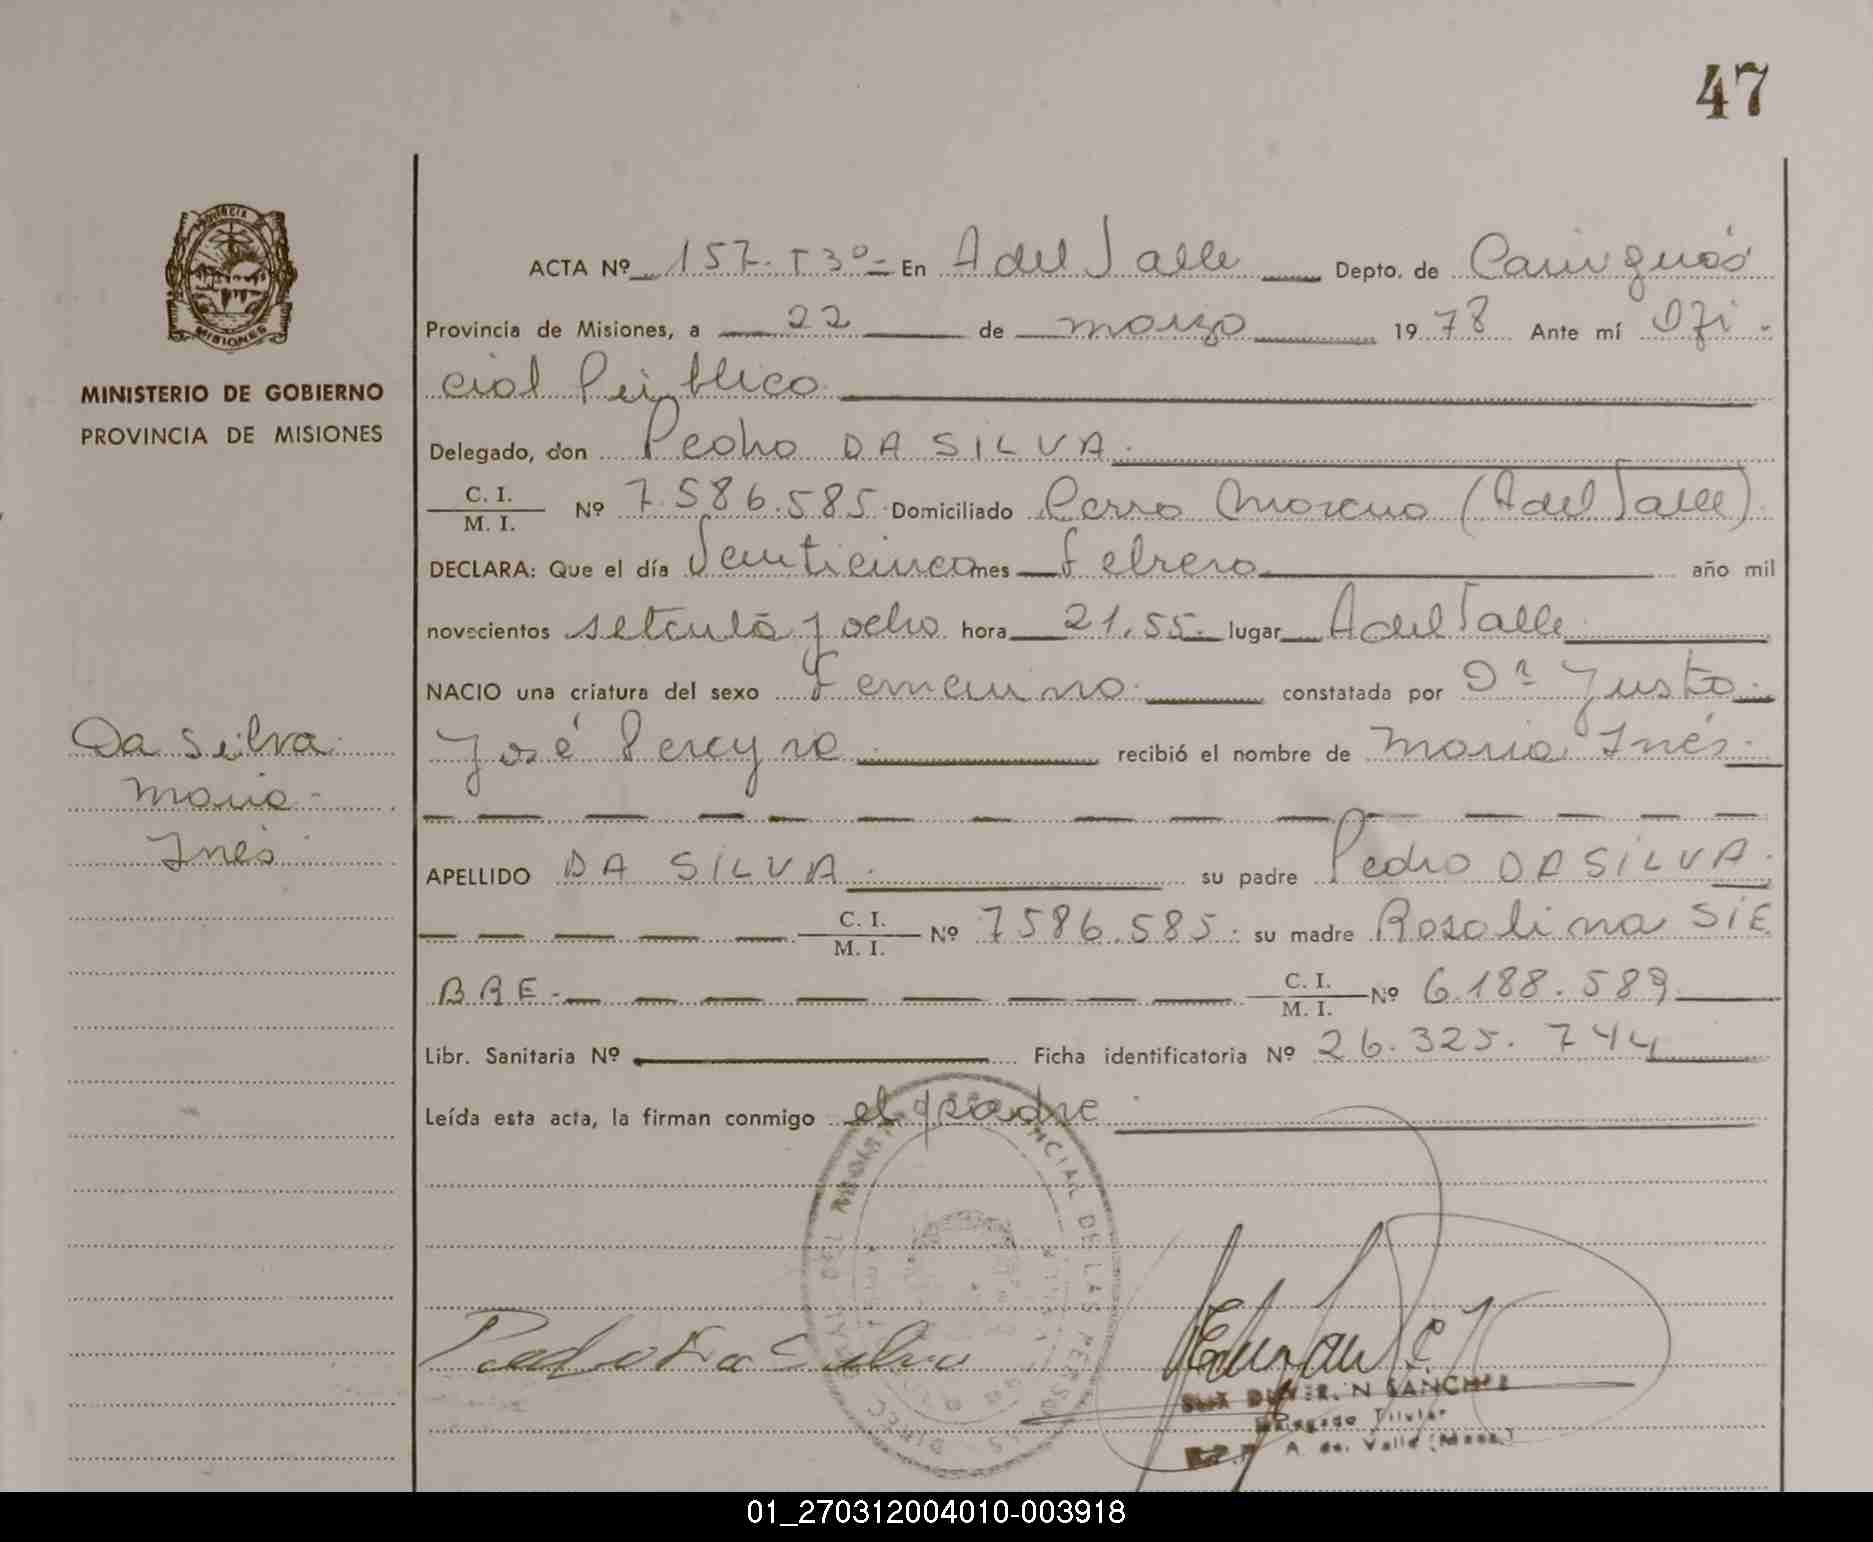 47
PROVINCIA
MISIONES
MINISTERIO DE GOBIERNO
PROVINCIA DE MISIONES
Da Silva
Maria
Inés
ACTA Nº 157. T3º En A del Valle Depto. de Cainguás
Provincia de Misiones, a 22 de marzo 1978 Ante mí Ofi-
cial Público
Delegado, don Pedro DA SILVA.
C. I.
M. I. Nº 7.586.585 Domiciliado Cerro Moreno (A del Valle)
DECLARA: Que el día Venticinco mes febrero año mil
novecientos setenta y ocho hora 21.55 lugar A del Valle
NACIO una criatura del sexo Femenino constatada por Dr Justo
José Pereyra recibió el nombre de Maria Inés
APELLIDO DA SILVA su padre Pedro DA SILVA.
C. I.
M. I. Nº 7586.585. su madre Rosalina SIE
BRE- C. I.
M. I. Nº 6.188.589
Libr. Sanitaria Nº Ficha identificatoria Nº 26.325.744
Leída esta acta, la firman conmigo el padre
CIAL DE LAS PERSONAS
DIREC
Pedro Da Silva
SANCHEZ
Delegado Titular
A. del Valle (Mnes.)
01_270312004010-003918